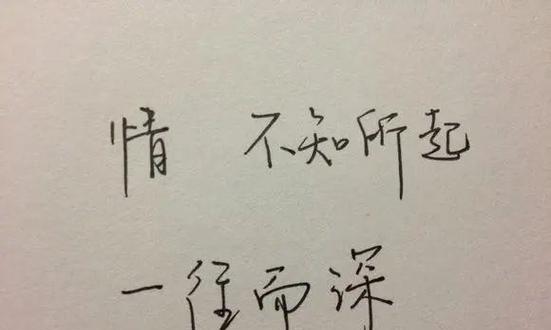 情 不知所起
一往而深